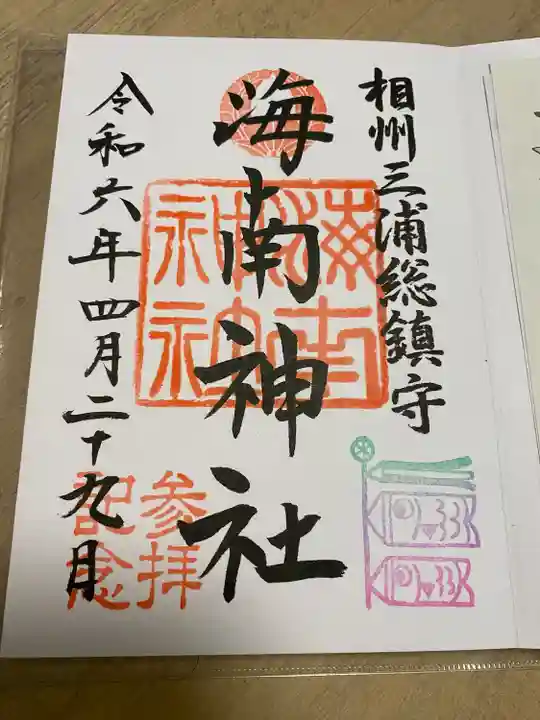 相州三浦総鎮守
海南神社
海南神社
参拝記念
令和六年四月二十九月